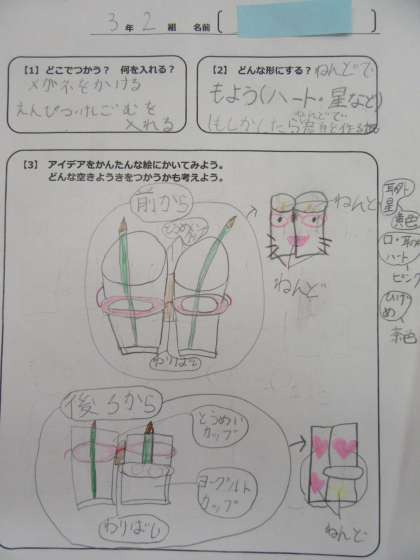 3年 2 組 名前
【1】 どこでつかう？ 何を入れる？
メガネをかける
えんぴつ・けしごむを
入れる
【2】 どんな形にする？ ねんどで
もよう(ハート・星など)
もしかしたら
【3】 アイデアをかんたんな絵にかいてみよう。
どんな空きようきをつかうかも考えよう。
前から
とうめい
わりばし
ねんど
ねんど
星
黄色
口・耳
ハート
ピンク
ひげ
め
茶色
後ろから
とうめい
カップ
ヨーグルト
カップ
わりばし
ねんど